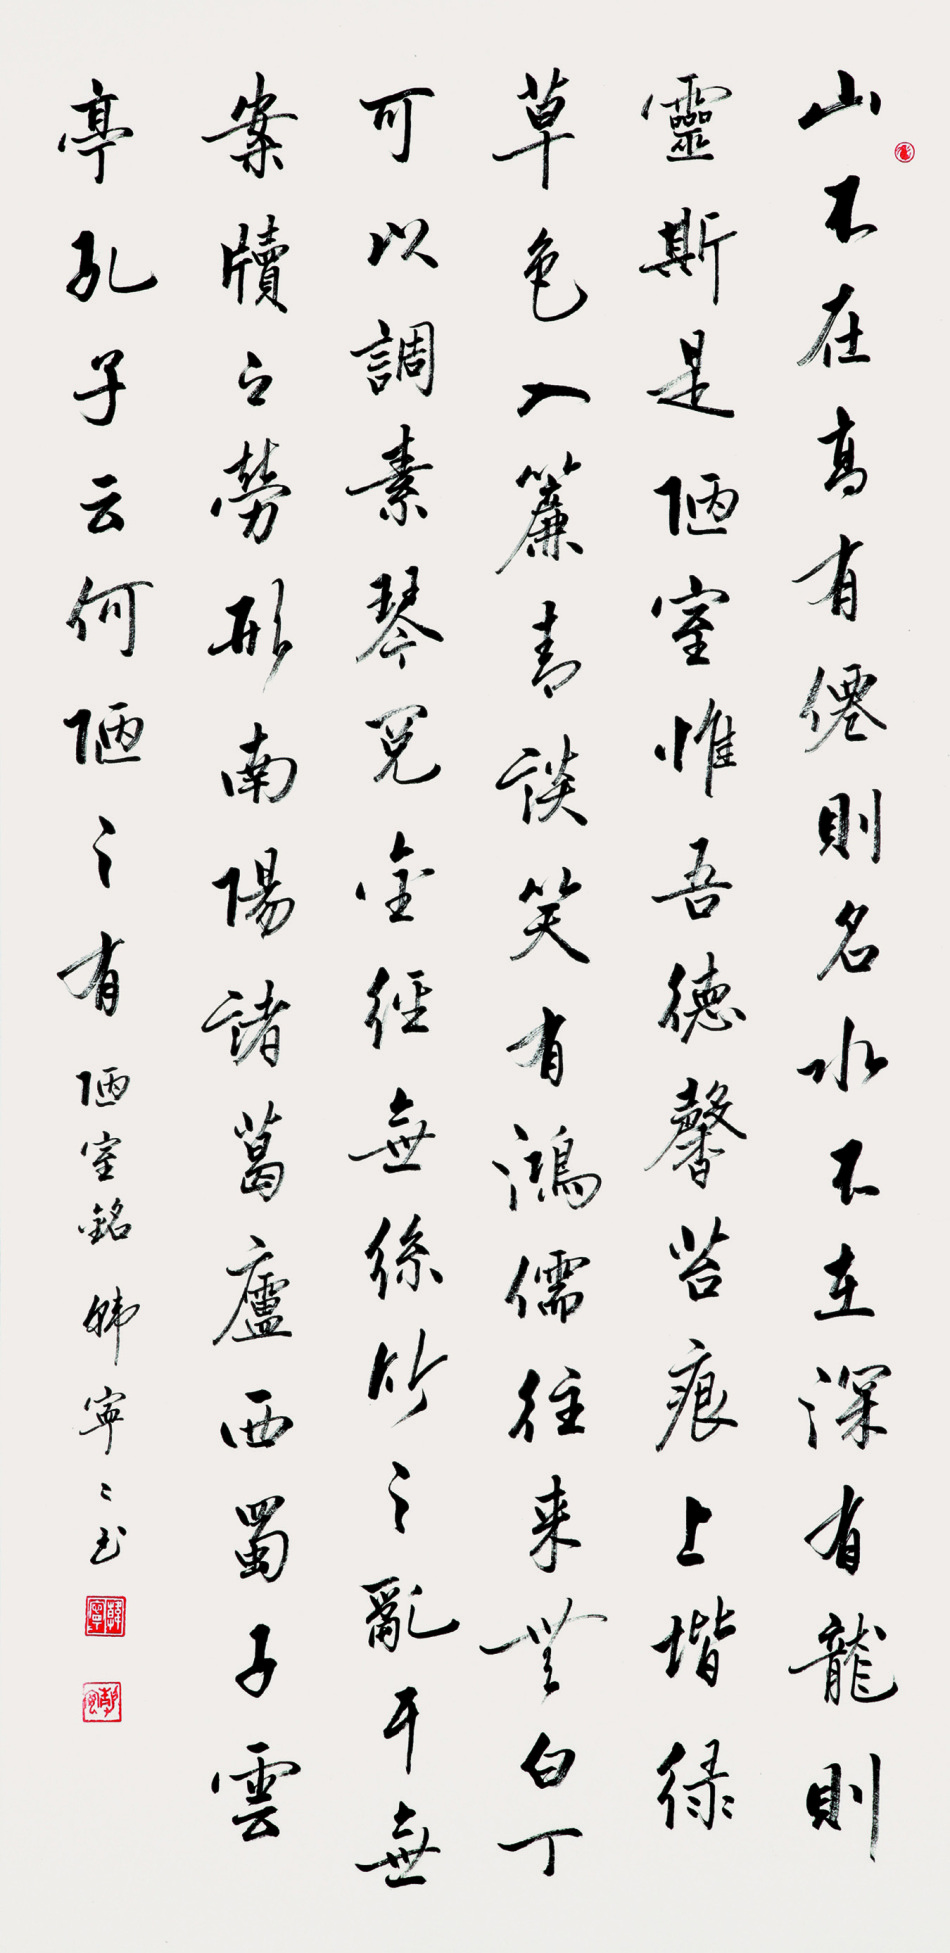 山不在高有僊則名水不在深有龍則
靈斯是陋室惟吾德馨苔痕上堦緑
草色入簾青談笑有鴻儒往来無白丁
可以調素琴閲金經無絲竹之亂耳無
案牘之勞形南陽諸葛廬西蜀子雲
亭孔子云何陋之有 陋室銘 韓寧〻书